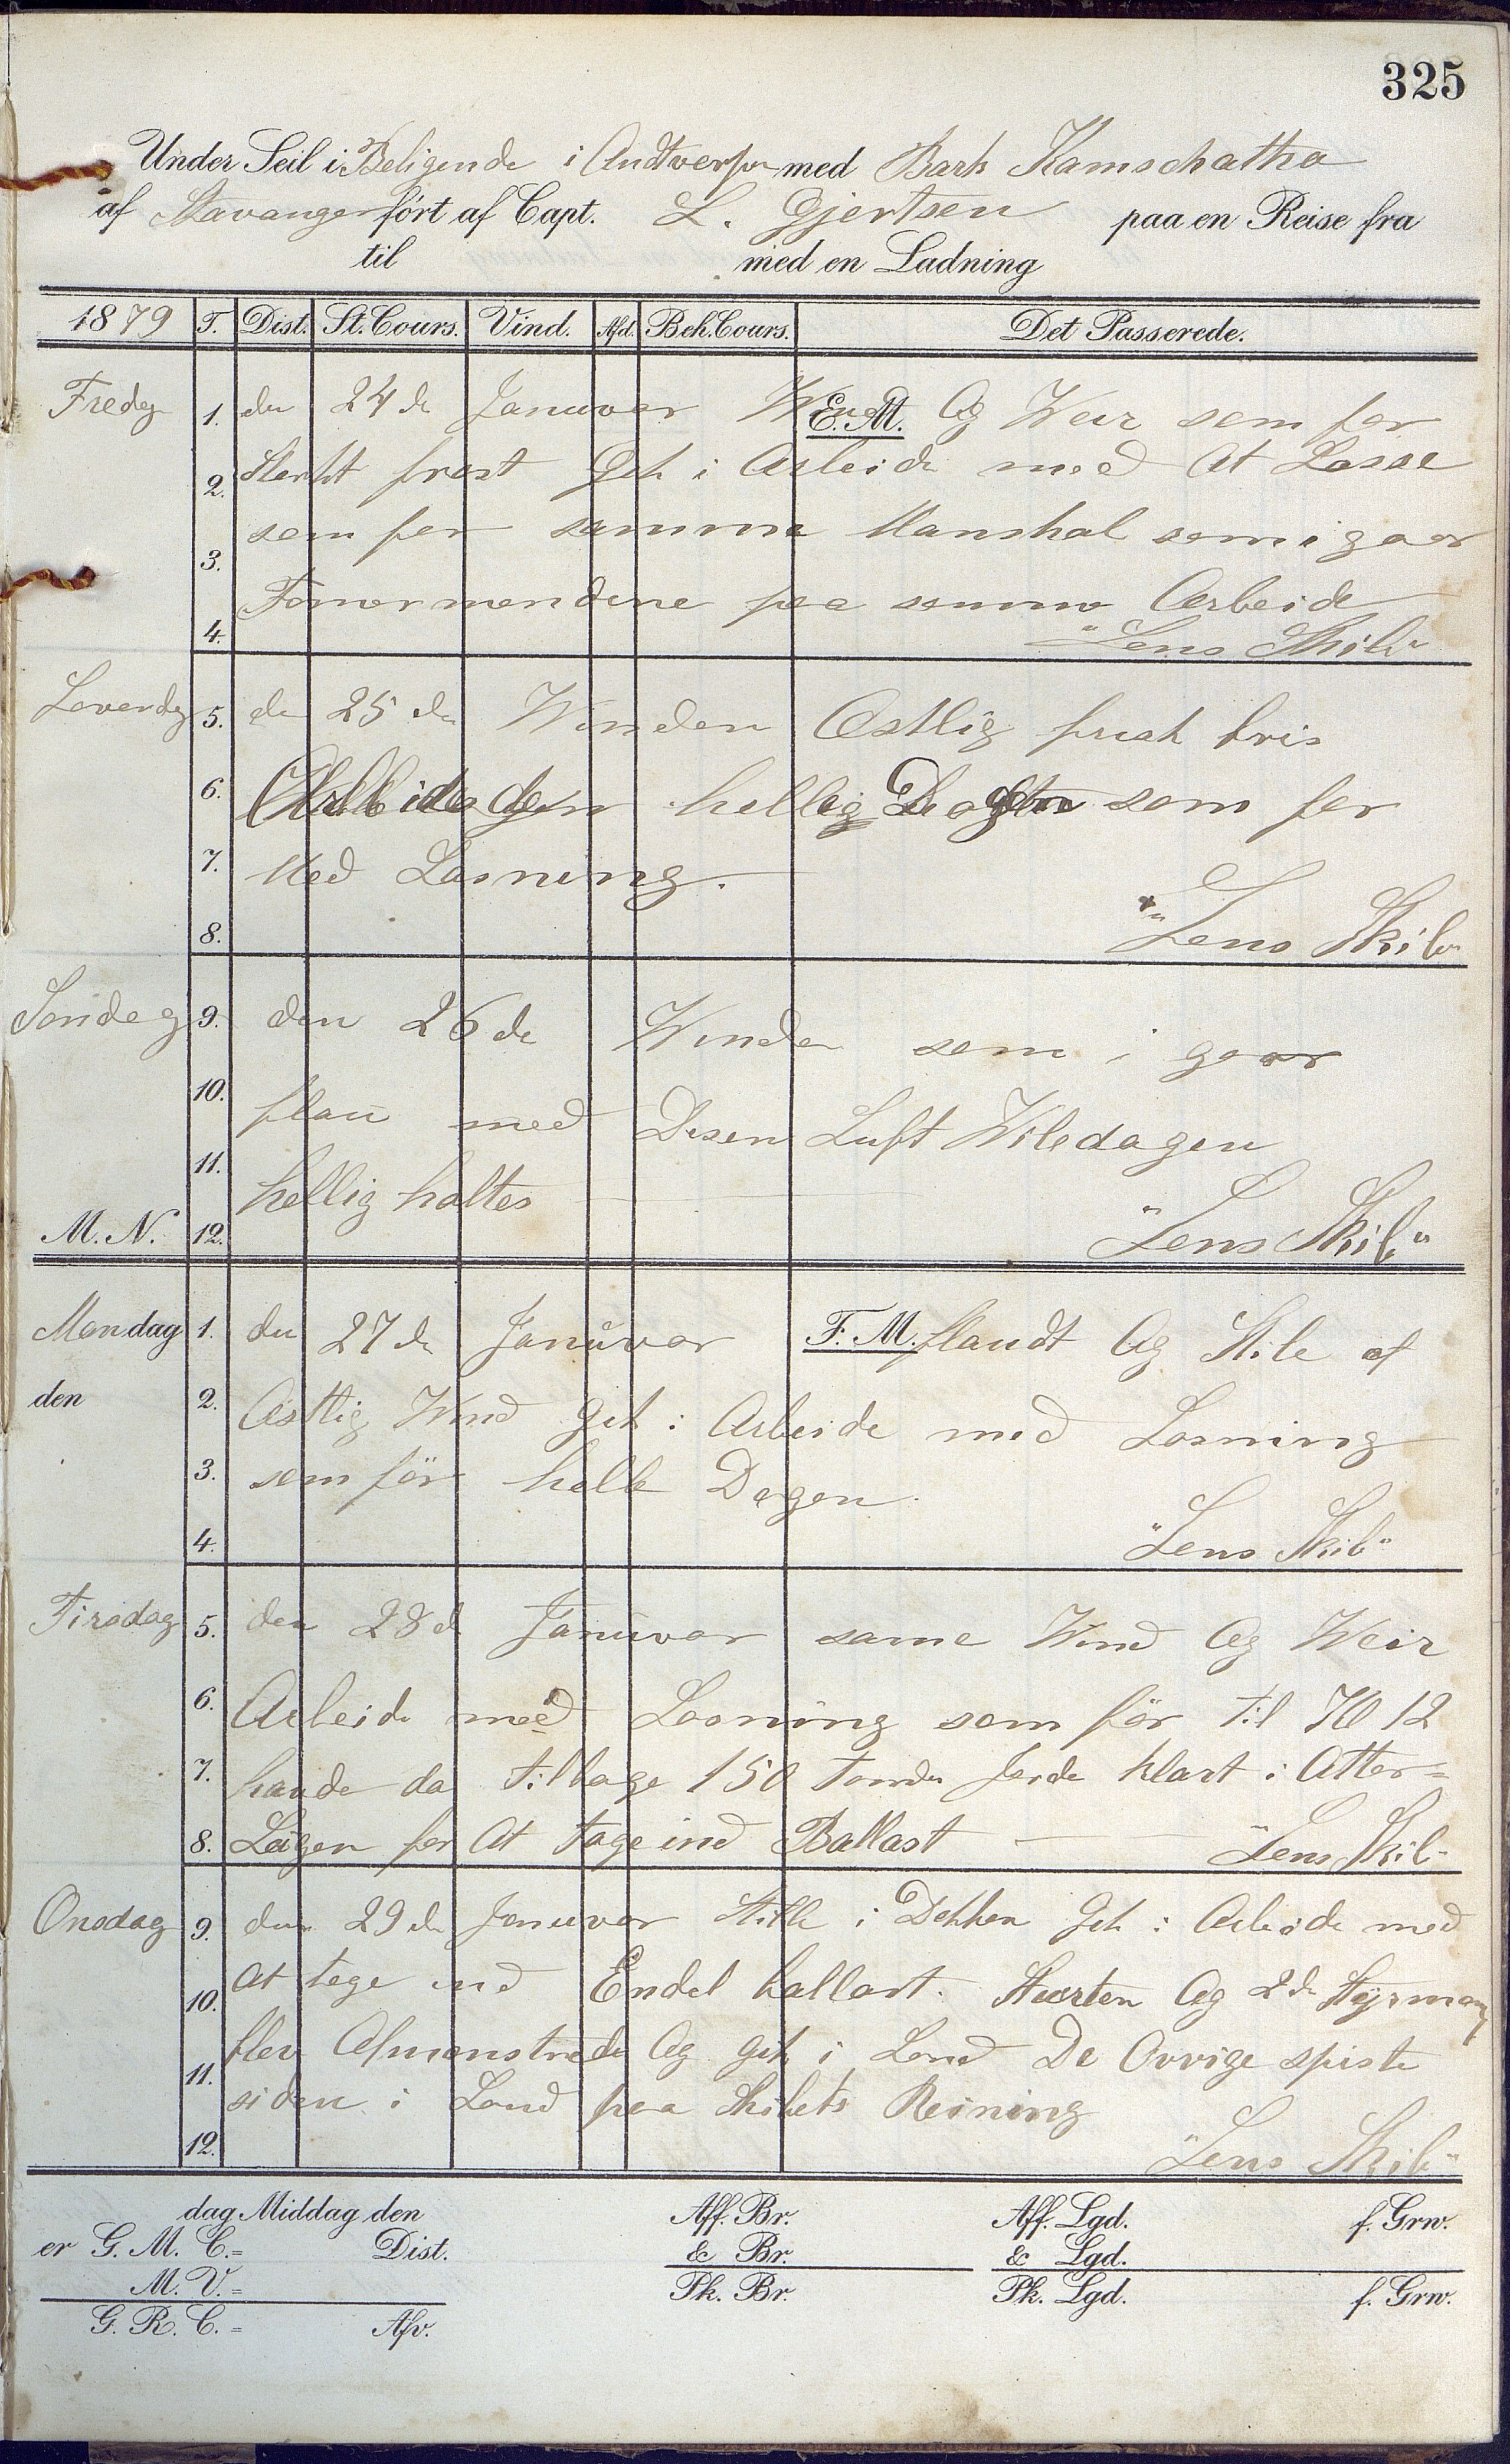 325
Under Seil i Beligende i Andtverpn med Bark Kamschatka
af Stavanger ført af Capt. L. Gjertsen paa en Reise fra
til med en Ladning
1879 T. Dist. St. Cours. Vind. Afd. Beh. Cours. Det Passerede.
Fredag 1. den 24de Januvar E. M. Og Weir som for
2. Sterkt frost Gik i Arbeide med At Losse
3. som for samme Manskal som i gaar
4. Tømermendene paa samme Arbeide
"Lens Skib"
Loverdag 5. den 25de Winden Ostlig frisk bris
6. Arbeide den hellig Dagen som for
7. Med Losning.
8. "Lens Skib"
Søndag 9. den 26de Winden som i gaar
10. flau med Disen Luft Wiledagen
11. hellig holtes
M. N. 12. "Lens Skib"
Mandag 1. den 27de Januvar F. M. flaudt Og Stile af
den 2. Ostlig Wind Gik i Arbeide med Losning
3. som før helle Dagen.
4. "Lens Skib"
Tirsdag 5. den 28d Januvar same Wind Og Weir
6. Arbeide med Losning som før til Kl 12
7. havde da tilbage 150 Tonder Jorde klart i Atter=
8. Laigen for At tage ind Ballast "Lens Skib"
Onsdag 9. den 29de Januvar Stille i Dokken Gik i Arbeide med
10. At tage ind Endel ballast. Stuerten Og 2de Styrman
11. blev Afmonstrede Og gik i Land De Ovrige spiste
siden i Land paa Skibets Reining
12. "Lens Skib"
dag Middag den Aff. Br. Aff. Lgd. f. Grw.
er G. M. C.= Dist. & Br. & Lgd.
M. V.= Pk. Br. Pk. Lgd. f. Grw.
G. R. C.= Afv.